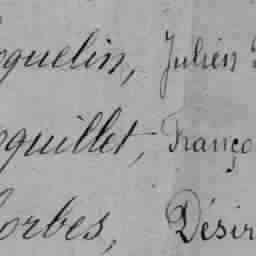 oquelin, Julien
oquillet, Franço
orbes, Désir